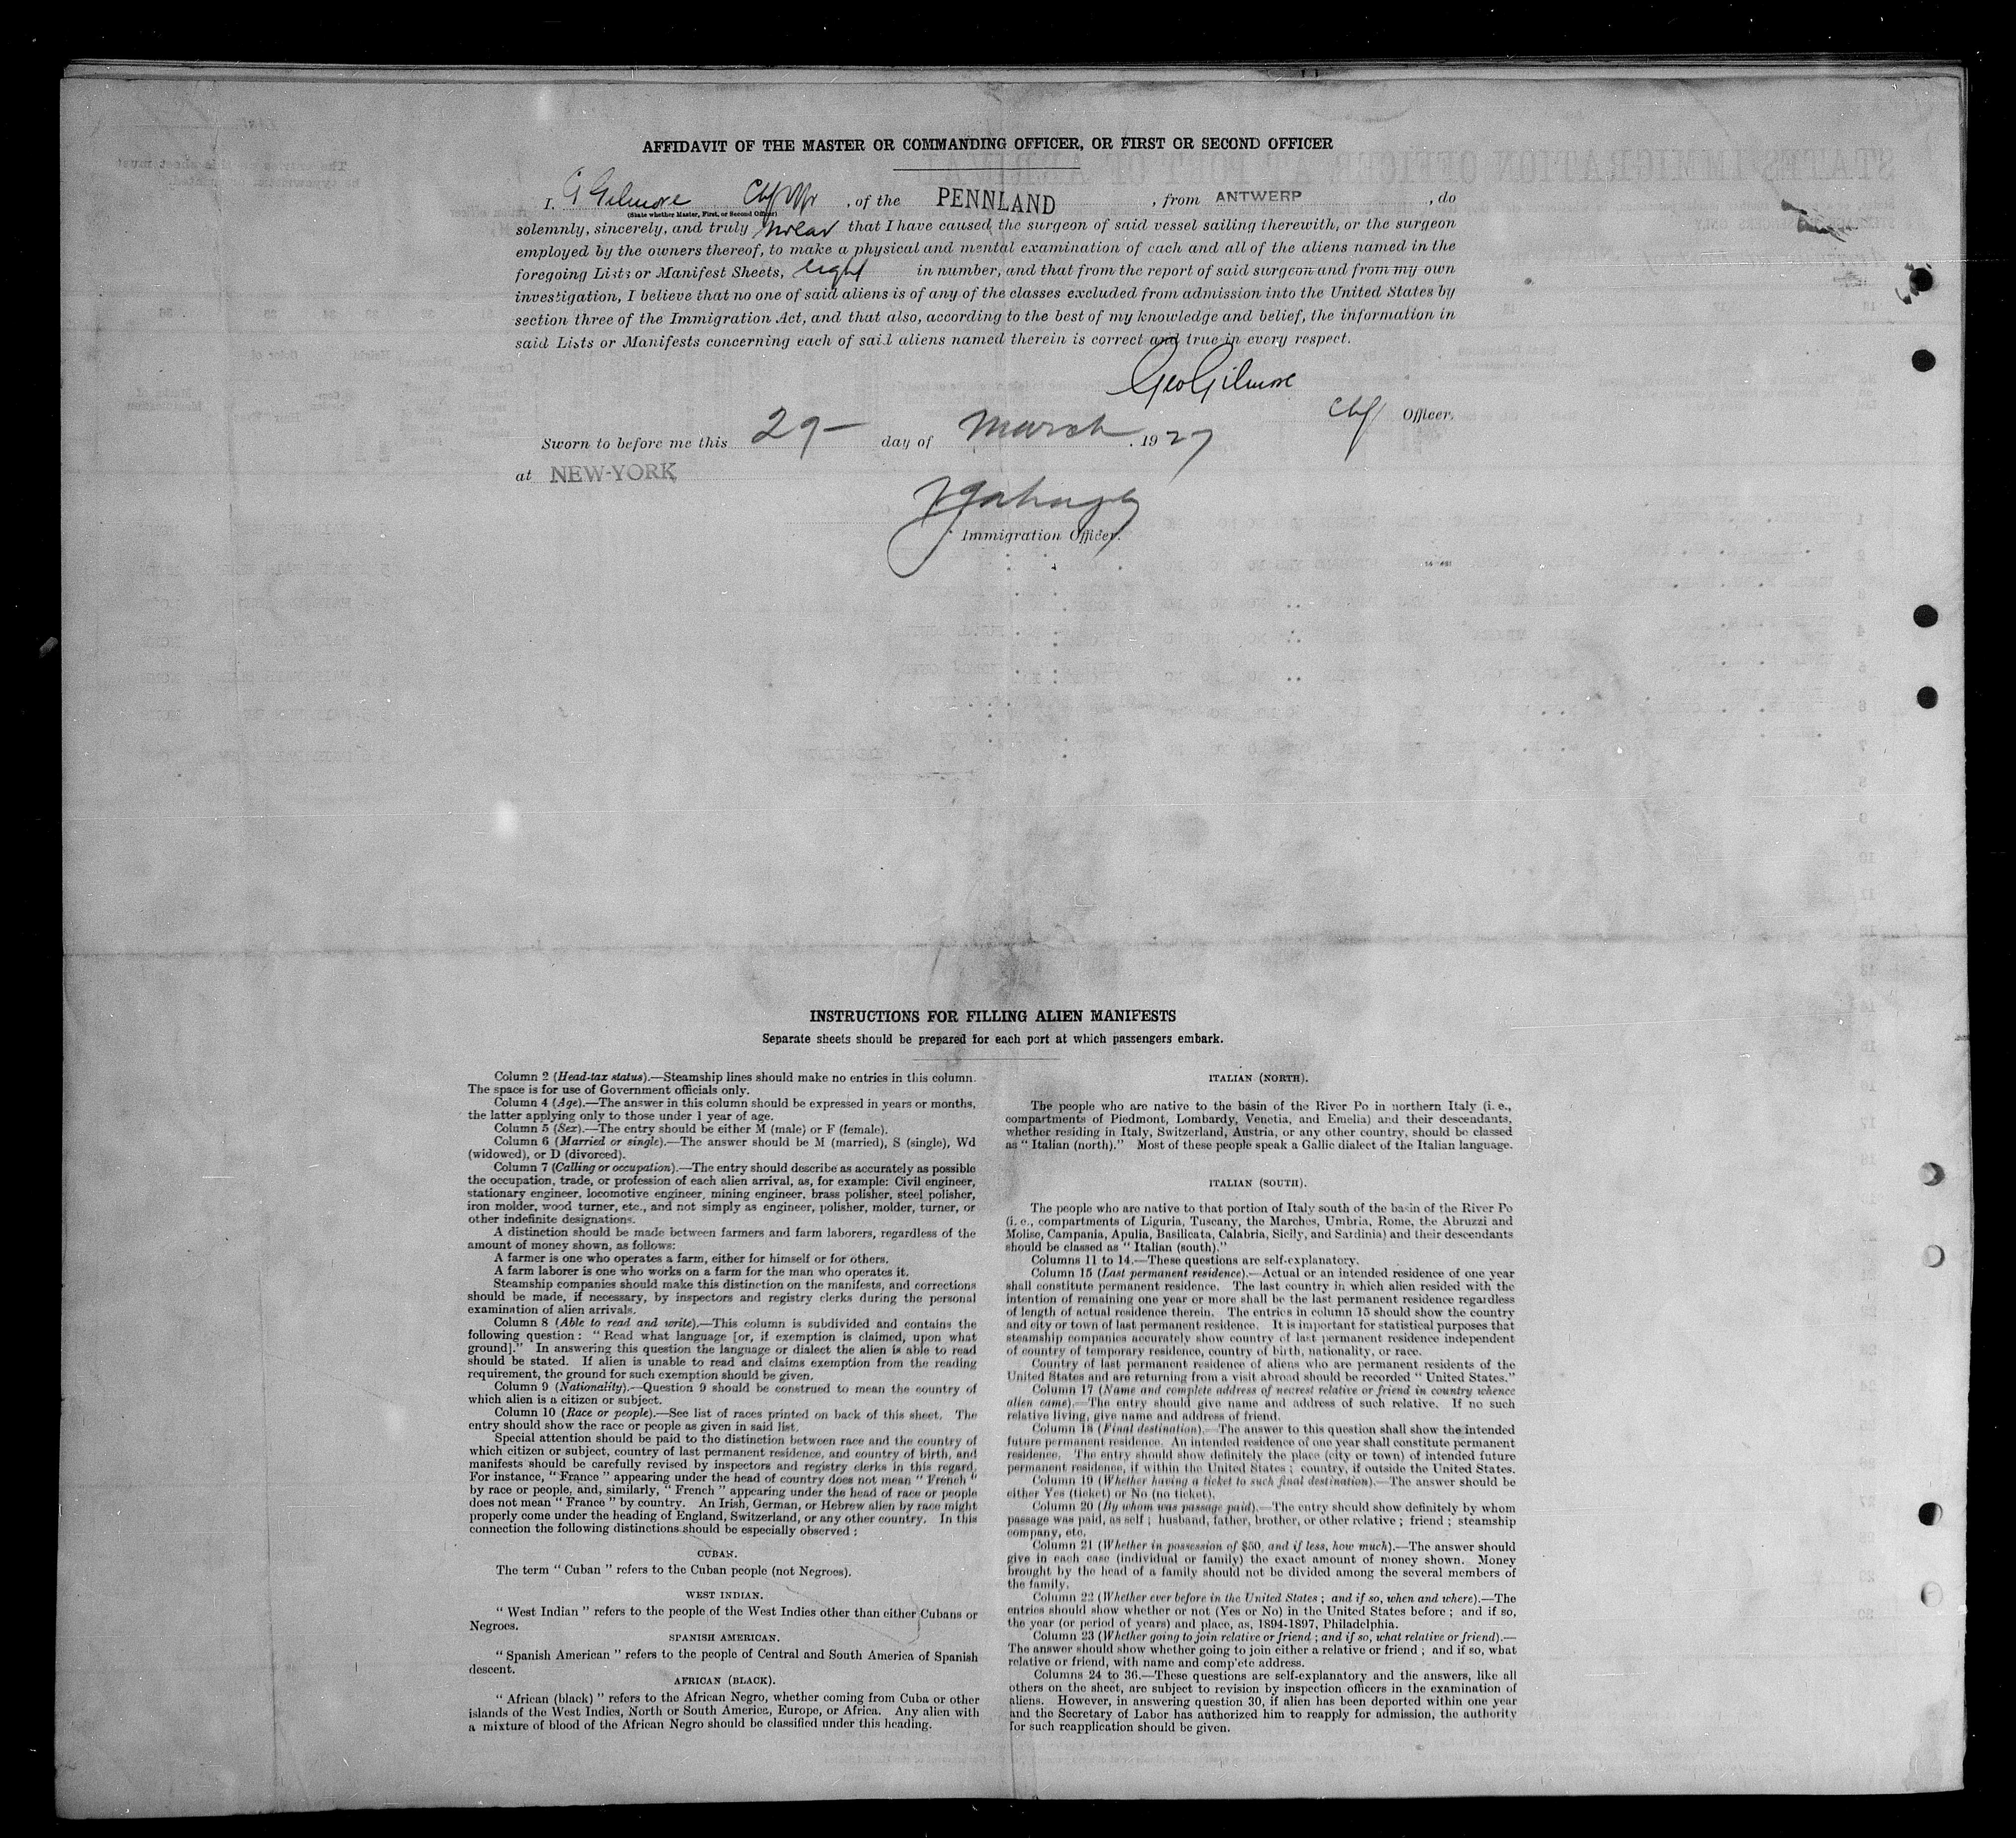 AFFIDAVIT OF THE MASTER OR COMMANDING OFFICER, OR FIRST OR SECOND OFFICER
I, G Gilmore Chf Offr, of the PENNLAND, from ANTWERP, do
(State whether Master, First, or Second Officer)
solemnly, sincerely, and truly swear that I have caused the surgeon of said vessel sailing therewith, or the surgeon
employed by the owners thereof, to make a physical and mental examination of each and all of the aliens named in the
foregoing Lists or Manifest Sheets, eight in number, and that from the report of said surgeon and from my own
investigation, I believe that no one of said aliens is of any of the classes excluded from admission into the United States by
section three of the Immigration Act, and that also, according to the best of my knowledge and belief, the information in
said Lists or Manifests concerning each of said aliens named therein is correct and true in every respect.
Geo Gilmore
Chf Officer.
Sworn to before me this 29- day of March, 1927
at NEW-YORK
Immigration Officer.
INSTRUCTIONS FOR FILLING ALIEN MANIFESTS
Separate sheets should be prepared for each port at which passengers embark.
Column 2 (Head-tax status).—Steamship lines should make no entries in this column.
The space is for use of Government officials only.
Column 4 (Age).—The answer in this column should be expressed in years or months,
the latter applying only to those under 1 year of age.
Column 5 (Sex).—The entry should be either M (male) or F (female).
Column 6 (Married or single).—The answer should be M (married), S (single), Wd
(widowed), or D (divorced).
Column 7 (Calling or occupation).—The entry should describe as accurately as possible
the occupation, trade, or profession of each alien arrival, as, for example: Civil engineer,
stationary engineer, locomotive engineer, mining engineer, brass polisher, steel polisher,
iron molder, wood turner, etc., and not simply as engineer, polisher, molder, turner, or
other indefinite designations.
A distinction should be made between farmers and farm laborers, regardless of the
amount of money shown, as follows:
A farmer is one who operates a farm, either for himself or for others.
A farm laborer is one who works on a farm for the man who operates it.
Steamship companies should make this distinction on the manifests, and corrections
should be made, if necessary, by inspectors and registry clerks during the personal
examination of alien arrivals.
Column 8 (Able to read and write).—This column is subdivided and contains the
following question : " Read what language [or, if exemption is claimed, upon what
ground]." In answering this question the language or dialect the alien is able to read
should be stated. If alien is unable to read and claims exemption from the reading
requirement, the ground for such exemption should be given.
Column 9 (Nationality).—Question 9 should be construed to mean the country of
which alien is a citizen or subject.
Column 10 (Race or people).—See list of races printed on back of this sheet. The
entry should show the race or people as given in said list.
Special attention should be paid to the distinction between race and the country of
which citizen or subject, country of last permanent residence, and country of birth, and
manifests should be carefully revised by inspectors and registry clerks in this regard.
For instance, " France " appearing under the head of country does not mean " French "
by race or people, and, similarly, " French " appearing under the head of race or people
does not mean " France " by country. An Irish, German, or Hebrew alien by race might
properly come under the heading of England, Switzerland, or any other country. In this
connection the following distinctions should be especially observed :
CUBAN.
The term " Cuban " refers to the Cuban people (not Negroes).
WEST INDIAN.
" West Indian " refers to the people of the West Indies other than either Cubans or
Negroes.
SPANISH AMERICAN.
" Spanish American " refers to the people of Central and South America of Spanish
descent.
AFRICAN (BLACK).
" African (black) " refers to the African Negro, whether coming from Cuba or other
islands of the West Indies, North or South America, Europe, or Africa. Any alien with
a mixture of blood of the African Negro should be classified under this heading.
ITALIAN (NORTH).
The people who are native to the basin of the River Po in northern Italy (i. e.,
compartments of Piedmont, Lombardy, Venetia, and Emelia) and their descendants,
whether residing in Italy, Switzerland, Austria, or any other country, should be classed
as " Italian (north)." Most of these people speak a Gallic dialect of the Italian language.
ITALIAN (SOUTH).
The people who are native to that portion of Italy south of the basin of the River Po
(i. e., compartments of Liguria, Tuscany, the Marches, Umbria, Rome, the Abruzzi and
Molise, Campania, Apulia, Basilicata, Calabria, Sicily, and Sardinia) and their descendants
should be classed as " Italian (south)."
Columns 11 to 14.—These questions are self-explanatory.
Column 15 (Last permanent residence).—Actual or an intended residence of one year
shall constitute permanent residence. The last country in which alien resided with the
intention of remaining one year or more shall be the last permanent residence regardless
of length of actual residence therein. The entries in column 15 should show the country
and city or town of last permanent residence. It is important for statistical purposes that
steamship companies accurately show country of last permanent residence independent
of country of temporary residence, country of birth, nationality, or race.
Country of last permanent residence of aliens who are permanent residents of the
United States and are returning from a visit abroad should be recorded " United States."
Column 17 (Name and complete address of nearest relative or friend in country whence
alien came).—The entry should give name and address of such relative. If no such
relative living, give name and address of friend.
Column 18 (Final destination).—The answer to this question shall show the intended
future permanent residence. An intended residence of one year shall constitute permanent
residence. The entry should show definitely the place (city or town) of intended future
permanent residence, if within the United States ; country, if outside the United States.
Column 19 (Whether having a ticket to such final destination).—The answer should be
either Yes (ticket) or No (no ticket).
Column 20 (By whom was passage paid).—The entry should show definitely by whom
passage was paid, as self ; husband, father, brother, or other relative ; friend ; steamship
company, etc.
Column 21 (Whether in possession of $50, and if less, how much).—The answer should
give in each case (individual or family) the exact amount of money shown. Money
brought by the head of a family should not be divided among the several members of
the family.
Column 22 (Whether ever before in the United States ; and if so, when and where).—The
entries should show whether or not (Yes or No) in the United States before ; and if so,
the year (or period of years) and place, as, 1894-1897, Philadelphia.
Column 23 (Whether going to join relative or friend ; and if so, what relative or friend).—
The answer should show whether going to join either a relative or friend ; and if so, what
relative or friend, with name and complete address.
Columns 24 to 36.—These questions are self-explanatory and the answers, like all
others on the sheet, are subject to revision by inspection officers in the examination of
aliens. However, in answering question 30, if alien has been deported within one year
and the Secretary of Labor has authorized him to reapply for admission, the authority
for such reapplication should be given.